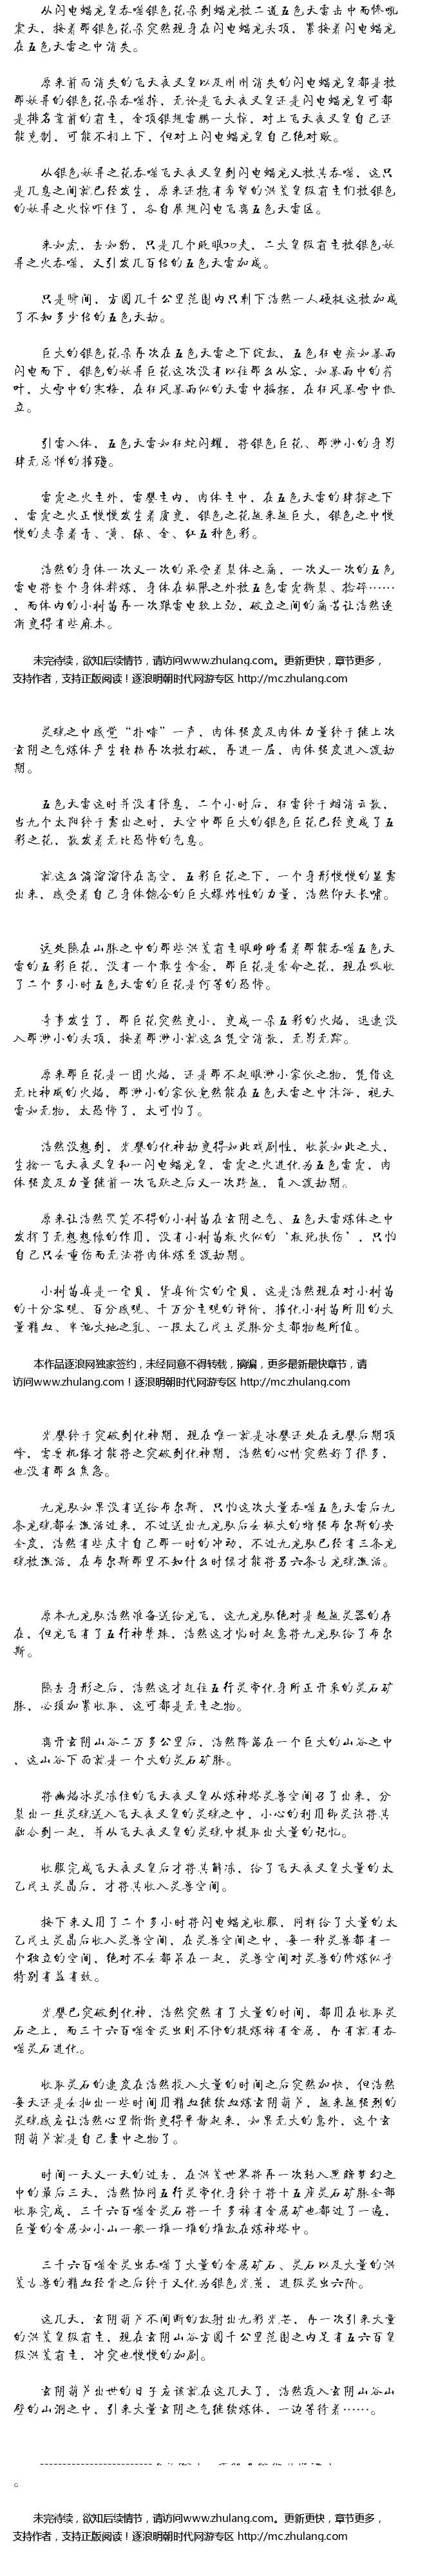 从闪电蟠龙皇吞噬银色花朵到蟠龙被二道五色天雷击中而惨吼
震天，接着那银色花朵突然现身在闪电蟠龙头顶，裹挟着闪电蟠龙
在五色天雷之中消失。
原来前面消失的飞天夜叉皇以及刚刚消失的闪电蟠龙皇都是被
那妖异的银色花朵吞噬掉，无论是飞天夜叉皇还是闪电蟠龙皇可都
是排名靠前的君主，金顶银翅雷鹏一大惊，对上飞天夜叉皇自己还
能克制，可能不相上下，但对上闪电蟠龙皇自己绝对败。
从银色妖异之花吞噬飞天夜叉皇到闪电蟠龙又被其吞噬，这只
是几息之间就已经发生，原来还抱有希望的洪荒皇级君主们被银色
的妖异之火惊吓住了，各自展翅闪电飞离五色天雷区。
来如虎，去如豹，只是几个眨眼功夫，二大皇级君主被银色妖
异之火吞噬，又引发几百倍的五色天雷加成。
只是瞬间，方圆几千公里范围内只剩下浩然一人硬抗这被加成
了不知多少倍的五色天劫。
巨大的银色花朵再次在五色天雷之下绽放，五色狂电疾如暴雨
闪电而下，银色的妖异巨花这次没有以往那么从容，如暴雨中的荷
叶，大雪中的寒梅，在狂风暴雨似的天雷中摇摆，在狂风暴雪中傲
立。
引雷入体，五色天雷如狂蛇闪耀，将银色巨花、那渺小的身影
肆无忌惮的摧残。
雷霆之火主外，雷婴主内，肉体主中，在五色天雷的肆掠之下
，雷霆之火正慢慢发生着质变，银色之花越来越巨大，银色之中慢
慢的夹杂着青、黄、绿、金、红五种色彩。
浩然的身体一次又一次的承受着裂体之痛，一次又一次的五色
雷电将整个身体粹炼，身体在极限之外被五色雷霆撕裂、捻碎……
，而体内的小树苗再一次跟雷电较上劲，破立之间的痛苦让浩然逐
渐变得有些麻木。
未完待续，欲知后续情节，请访问www.zhulang.com。更新更快，章节更多，
支持作者，支持正版阅读！逐浪明朝时代网游专区 http://mc.zhulang.com
灵魂之中感觉“扑哧”一声，肉体强度及肉体力量终于继上次
玄阴之气炼体产生桎梏再次被打破，再进一层，肉体强度进入渡劫
期。
五色天雷这时并没有停息，二个小时后，狂雷终于烟消云散，
当九个太阳终于露出之时，天空中那巨大的银色巨花已经变成了五
彩之花，散发着无比恐怖的气息。
就这么滴溜溜停在高空，五彩巨花之下，一个身形慢慢的显露
出来，感受着自己身体饱含的巨大爆炸性的力量，浩然仰天长啸。
远处隐在山脉之中的那些洪荒君主眼睁睁看着那能吞噬五色天
雷的五彩巨花，没有一个敢生贪念，那巨花是索命之花，现在吸收
了二个多小时五色天雷的巨花是何等的恐怖。
奇事发生了，那巨花突然变小，变成一朵五彩的火焰，迅速没
入那渺小的头顶，接着那渺小就这么凭空消散，无影无踪。
原来那巨花是一团火焰，还是那不起眼渺小家伙之物，凭借这
无比神威的火焰，那渺小的家伙竟然能在五色天雷之中沐浴，视天
雷如无物，太恐怖了，太可怕了。
浩然没想到，光婴的化神劫变得如此戏剧性，收获如此之大，
生擒一飞天夜叉皇和一闪电蟠龙皇，雷霆之火进化为五色雷霆，肉
体强度及力量继前一次飞跃之后又一次跨越，直入渡劫期。
原来让浩然哭笑不得的小树苗在玄阴之气、五色天雷炼体之中
发挥了无想想像的作用，没有小树苗救火似的‘救死扶伤’，只怕
自己只会重伤而无法将肉体炼至渡劫期。
小树苗真是一宝贝，货真价实的宝贝，这是浩然现在对小树苗
的十分客观、百分感观、千万分主观的评价，催化小树苗所用的大
量精血、半池大地之乳、一段太乙戊土灵脉分支都物超所值。
本作品逐浪网独家签约，未经同意不得转载，摘编，更多最新最快章节，请
访问www.zhulang.com！逐浪明朝时代网游专区 http://mc.zhulang.com
光婴终于突破到化神期，现在唯一就是冰婴还处在元婴后期顶
峰，需要机缘才能将之突破到化神期，浩然的心情突然好了很多，
也没有那么焦急。
九龙驭如果没有送给布尔斯，只怕这次大量吞噬五色天雷后九
条龙魂都会激活过来，不过送出九龙驭后会极大的增强布尔斯的安
全度，浩然有些庆幸自己那一时的冲动，不过九龙驭已经有三条龙
魂被激活，在布尔斯那里不知什么时候才能将另六条古龙魂激活。
原本九龙驭浩然准备送给龙飞，这九龙驭绝对是超越灵器的存
在，但龙飞有了五行神禁珠，浩然这才临时起意将九龙驭给了布尔
斯。
隐去身形之后，浩然这才赶往五行灵帝化身所正开采的灵石矿
脉，必须加紧收取，这可都是无主之物。
离开玄阴山谷二万多公里后，浩然降落在一个巨大的山谷之中
，这山谷下面就是一个大的灵石矿脉。
将幽焰冰灵冻住的飞天夜叉皇从炼神塔灵兽空间召了出来，分
裂出一丝灵魂送入飞天夜叉皇的灵魂之中，小心的利用御灵诀将其
融合到一起，并从飞天夜叉皇的灵魂中提取出大量的记忆。
收服完成飞天夜叉皇后才将其解冻，给了飞天夜叉皇大量的太
乙戊土灵晶后，才将其收入灵兽空间。
接下来又用了二个多小时将闪电蟠龙收服，同样给了大量的太
乙戊土灵晶后收入灵兽空间，在灵兽空间之中，每一种灵兽都有一
个独立的空间，绝对不会都呆在一起，灵兽空间对灵兽的修炼似乎
特别有益有效。
光婴已突破到化神，浩然突然有了大量的时间，都用在收取灵
石之上，而三千六百噬金灵虫则不停的提炼稀有金属，再有就有吞
噬灵石进化。
收取灵石的速度在浩然投入大量的时间之后突然加快，但浩然
每天还是会抽出一些时间用精血继续血炼玄阴葫芦，越来越强烈的
灵魂感应让浩然心里渐渐变得平静起来，如果无大的意外，这个玄
阴葫芦就是自己囊中之物了。
时间一天又一天的过去，在洪荒世界将再一次转入黑暗梦幻之
中的最后三天，浩然协同五行灵帝化身终于将十五座灵石矿脉全部
收取完成，三千六百噬金灵石将一千多稀有金属矿也都过了一遍，
巨量的金属如小山一般一堆一堆的堆放在炼神塔中。
三千六百噬金灵虫吞噬了大量的金属矿石、灵石以及大量的洪
荒古兽的精血经骨之后终于又化为银色光茧，进级灵虫六阶。
这几天，玄阴葫芦不间断的放射出九彩光芒，再一次引来大量
的洪荒皇级君主，现在玄阴山谷方圆千公里范围之内足有五六百皇
级洪荒君主，冲突也慢慢的加剧。
玄阴葫芦出世的日子应该就在这几天了，浩然遁入玄阴山谷山
壁的山洞之中，引来大量玄阴之气继续炼体，一边等待着……。
。
未完待续，欲知后续情节，请访问www.zhulang.com。更新更快，章节更多，
支持作者，支持正版阅读！逐浪明朝时代网游专区 http://mc.zhulang.com